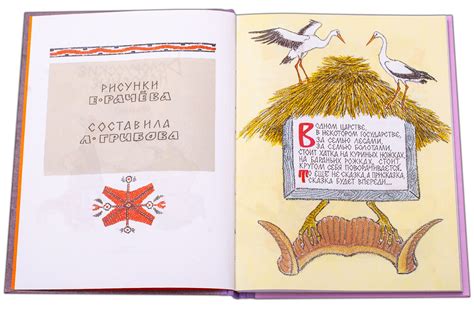 РИСУНКИ
Е·РАЧЁВА
СОСТАВИЛА
Л·ГРИБОВА
В ОДНОМ ЦАРСТВЕ,
В НЕКОТОРОМ ГОСУДАРСТВЕ,
ЗА СЕМЬЮ ЛЕСАМИ,
ЗА СЕМЬЮ БОЛОТАМИ,
СТОИТ ХАТКА НА КУРИНЫХ НОЖКАХ,
НА БАРАНЬИХ РОЖКАХ, СТОИТ,
КРУГОМ СЕБЯ ПОВОРАЧИВАЕТСЯ.
ТО ЕЩЁ НЕ СКАЗКА, А ПРИСКАЗКА,
СКАЗКА БУДЕТ ВПЕРЕДИ...